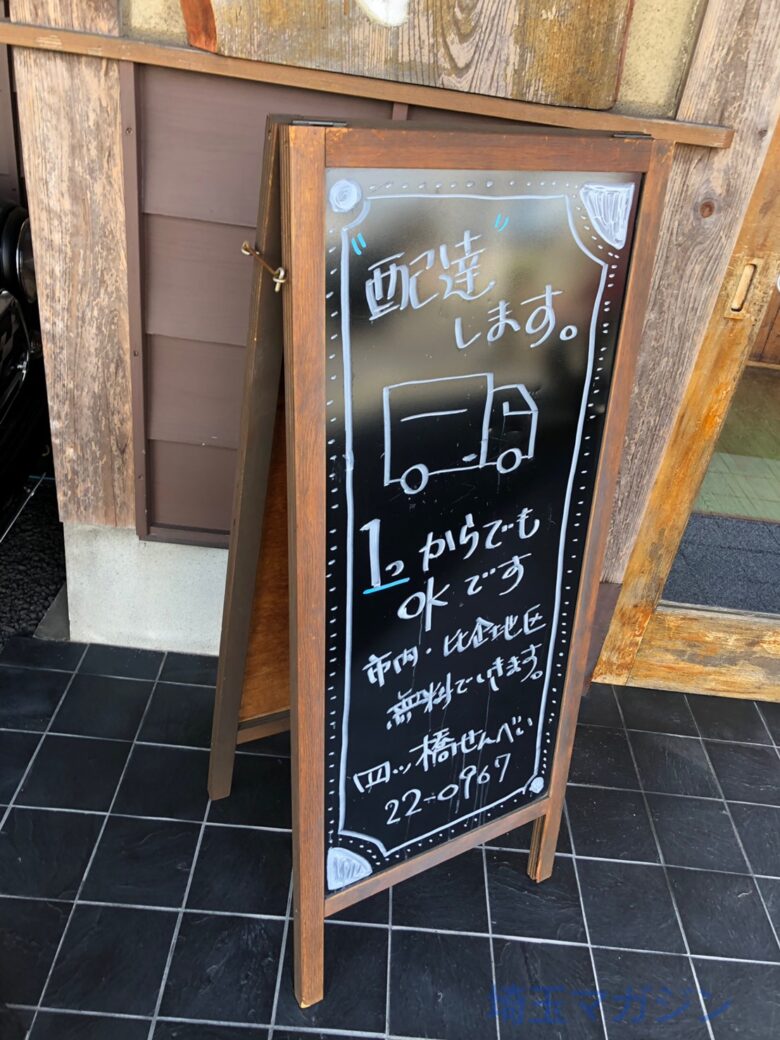 "配達"
します。
1つからでも
OKです
市内・比企地区
無料でいきます。
四ッ橋せんべい
22-0967
埼玉マガジン